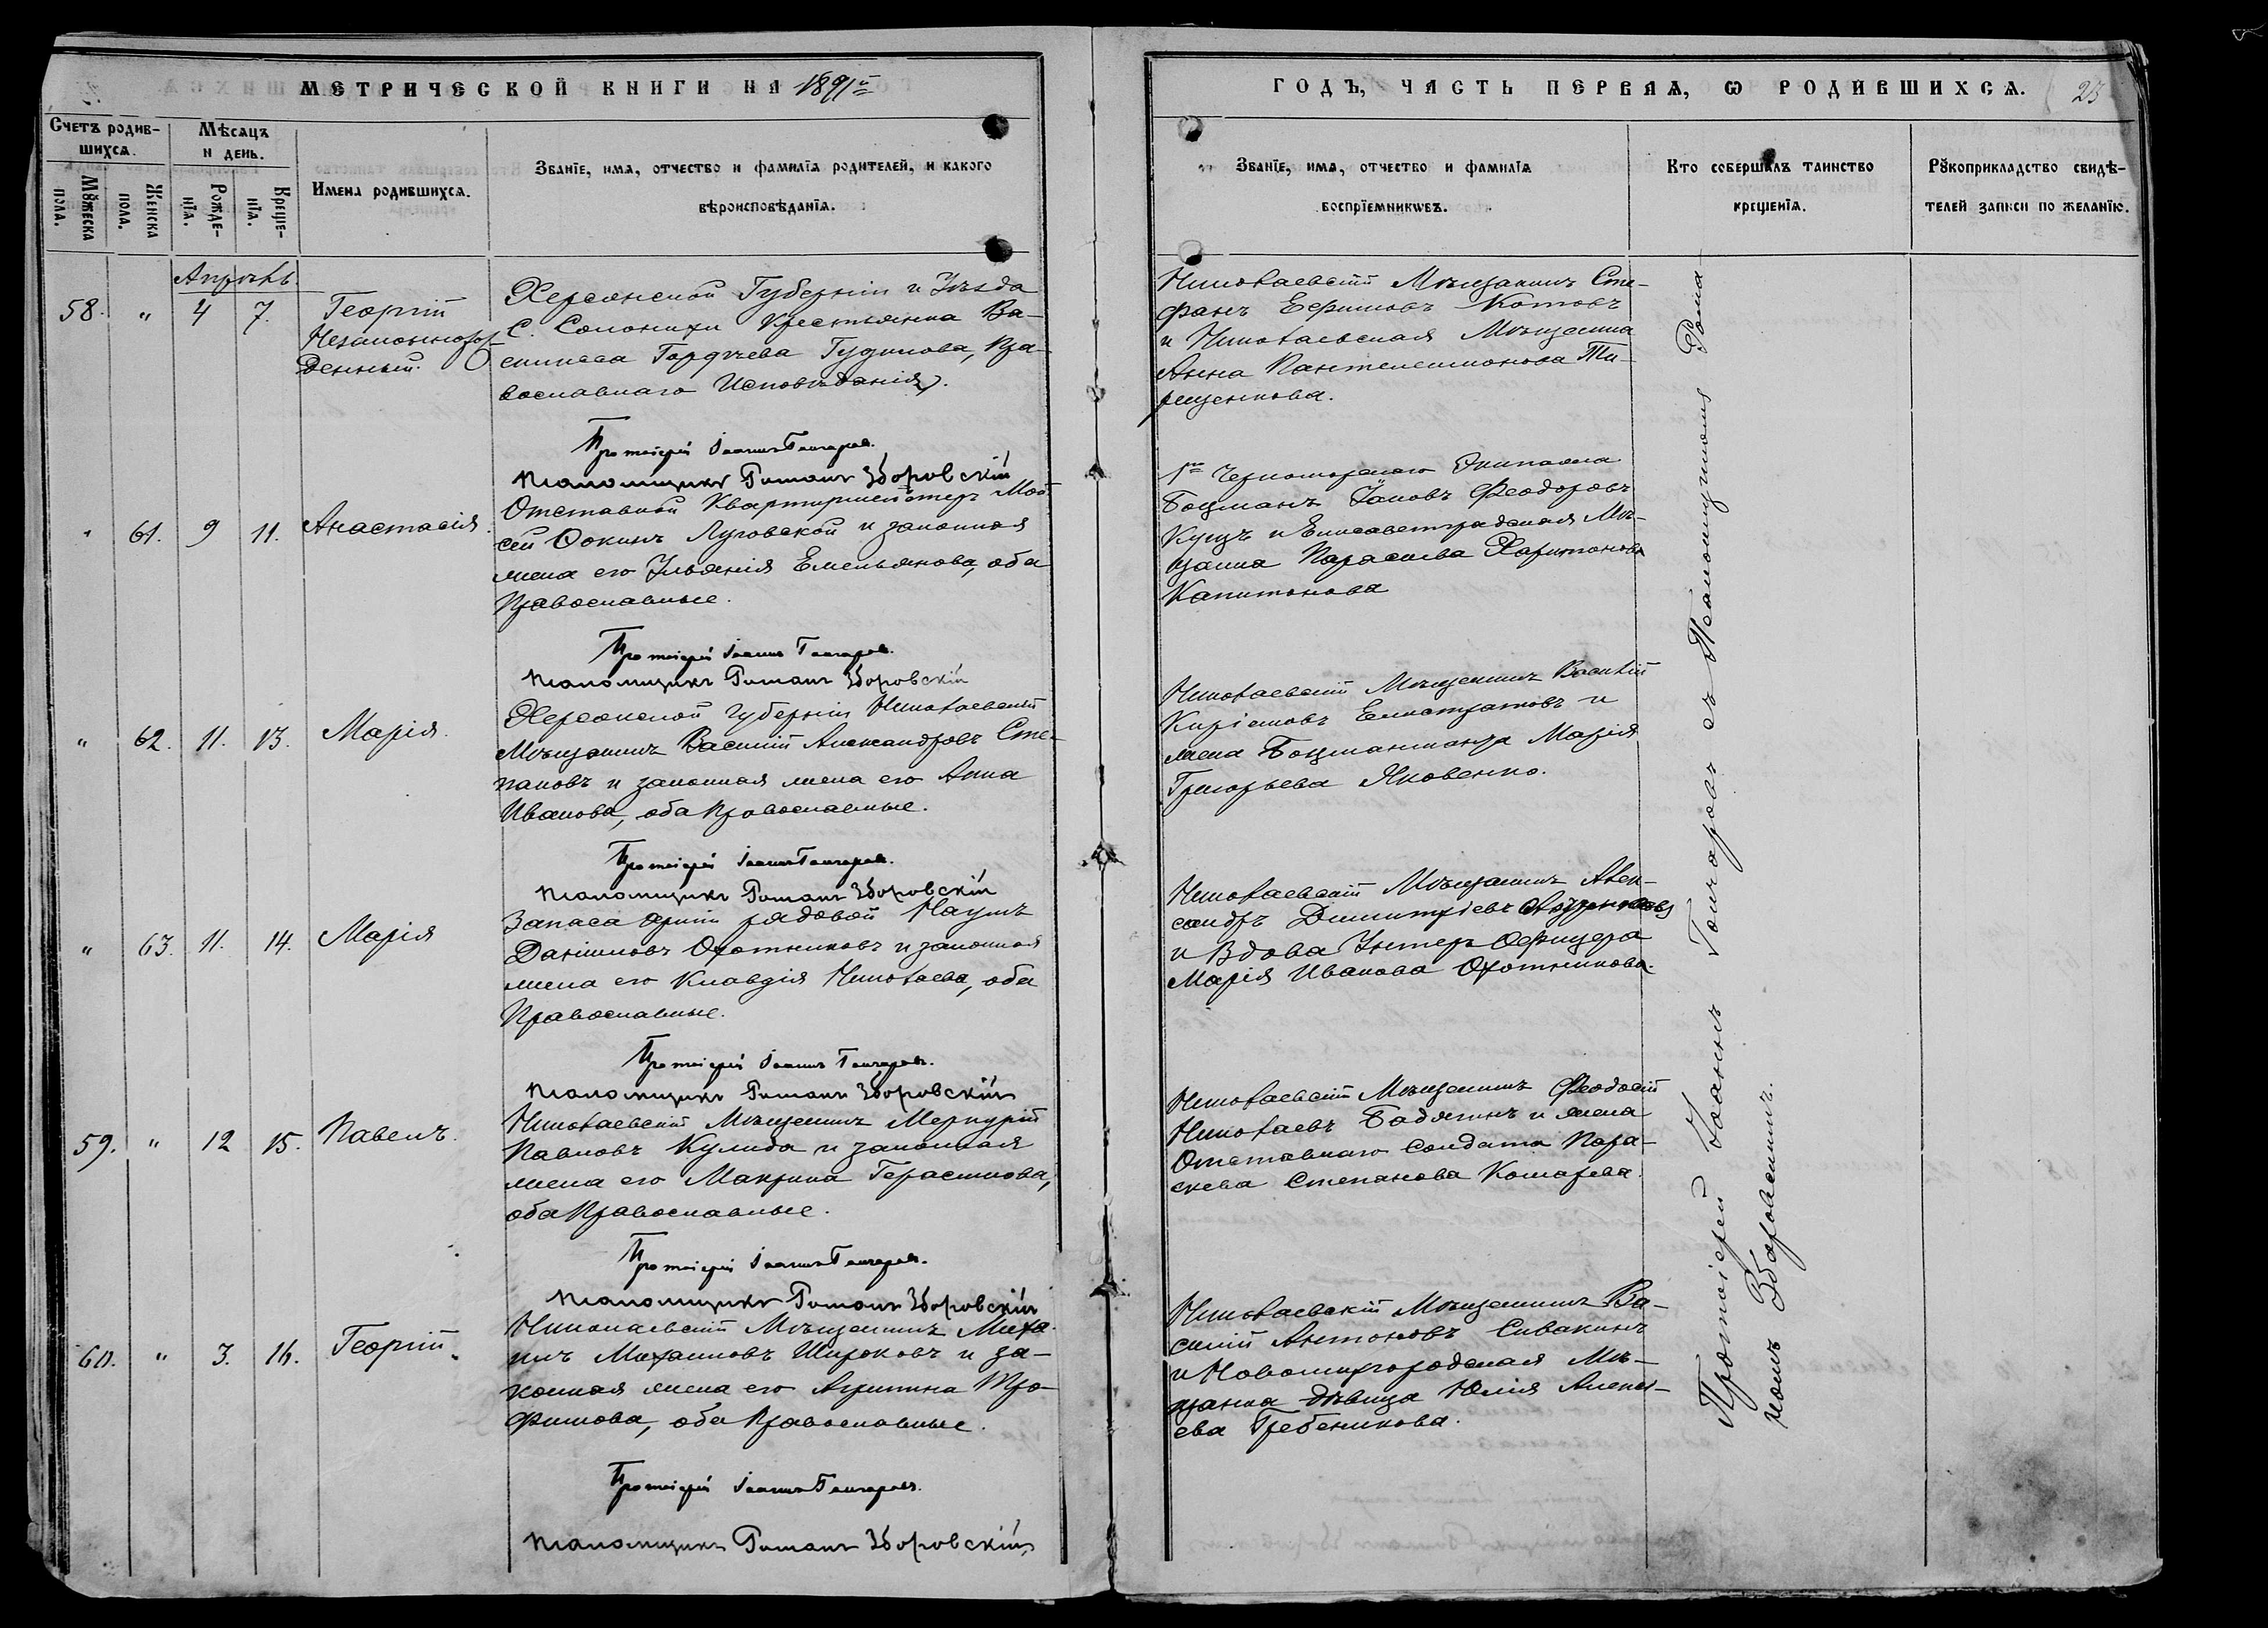 МЕТРИЧЕСКОЙ КНИГИ НА 1891й
ГОДЪ, ЧАСТЬ ПЕРВАЯ, Ѡ РОДИВШИХСѦ. 23
Счетъ родив-
шихсѧ.
Мѣсѧцъ
и день.
Имена родившихсѧ.
Званїе, имѧ, отчество и фамилїѧ родителей, и какого
вѣроисповѣданїѧ.
Мꙋжеска
пола.
Женска
пола.
Рожде-
нїѧ.
Креще-
нїѧ.
Званїе, имѧ, отчество и фамилїѧ
воспрїемникѡвъ.
Кто совершалъ таинство
крещенїѧ.
Рꙋкоприкладство свидѣ-
телей записи по желанїю.
Апрѣль.
58. " 4 7. Георгій
Незаконнорож-
денный.
Херсонской Губерніи и Уѣзда
С. Солонихи Крестьянка Ва-
силиса Гордѣева Гудимова, Пра-
вославнаго Исповѣданія.
Протоіерей Іоаннъ Гончаровъ.
Псаломщикъ Романъ Зборовскій
Николаевскій Мѣщанинъ Сте-
фанъ Ефимовъ Котовъ
и Николаевская Мѣщанка
Анна Пантелеимонова Ти-
рещенкова.
" 61. 9 11. Анастасія.
Отставной Квартирмейстеръ Мой-
сей Фокинъ Луговской и законная
жена его Ульянія Емельянова, оба
Православные.
Протоіерей Іоаннъ Гончаровъ.
Псаломщикъ Романъ Зборовскій
1го Черноморскаго Экипажа
Боцманъ Іаковъ Феодоровъ
Куцъ и Елисаветградская Мѣ-
щанка Параскева Харитонова
Капитонова
" 62. 11. 13. Марія.
Херсонской Губерніи Николаевскій
Мѣщанинъ Василій Александровъ Сте-
пановъ и законная жена его Анна
Иванова, оба Православные.
Протоіерей Іоаннъ Гончаровъ.
Псаломщикъ Романъ Зборовскій
Николаевскій Мѣщанинъ Василій
Киріаковъ Елистратовъ и
жена Боцманмата Марія
Григорьева Яковенко.
" 63. 11. 14. Марія
Запаса арміи рядовой Наумъ
Даниловъ Охотниковъ и законная
жена его Клавдія Николаева, оба
Православные.
Протоіерей Іоаннъ Гончаровъ.
Псаломщикъ Романъ Зборовскій
Николаевскій Мѣщанинъ Алек-
сандръ Димитріевъ
и Вдова Унтеръ Офицера
Марія Иванова Охотникова.
59. " 12 15. Павелъ.
Николаевскій Мѣщанинъ Меркурій
Павловъ Кулида и законная
жена его Макрина Герасимова,
оба Православные.
Протоіерей Іоаннъ Гончаровъ.
Псаломщикъ Романъ Зборовскій
Николаевскій Мѣщанинъ Феодосій
Николаевъ Бадягинъ и жена
Отставнаго Солдата Пара-
скева Степанова Комарева.
60. " 3. 16. Георгій.
Николаевскій Мѣщанинъ Миха-
илъ Михаиловъ Широковъ и за-
конная жена его Агрипина Тро-
фимова, оба Православные.
Протоіерей Іоаннъ Гончаровъ.
Псаломщикъ Романъ Зборовскій
Николаевскій Мѣщанинъ Ва-
силій Антоновъ Сивакинъ
и Новомиргородская Мѣ-
щанка дѣвица Юлія Алексѣ-
ева Гребенникова.
Протоіерей Іоаннъ Гончаровъ съ Псаломщикомъ Рома-
номъ Зборовскимъ.